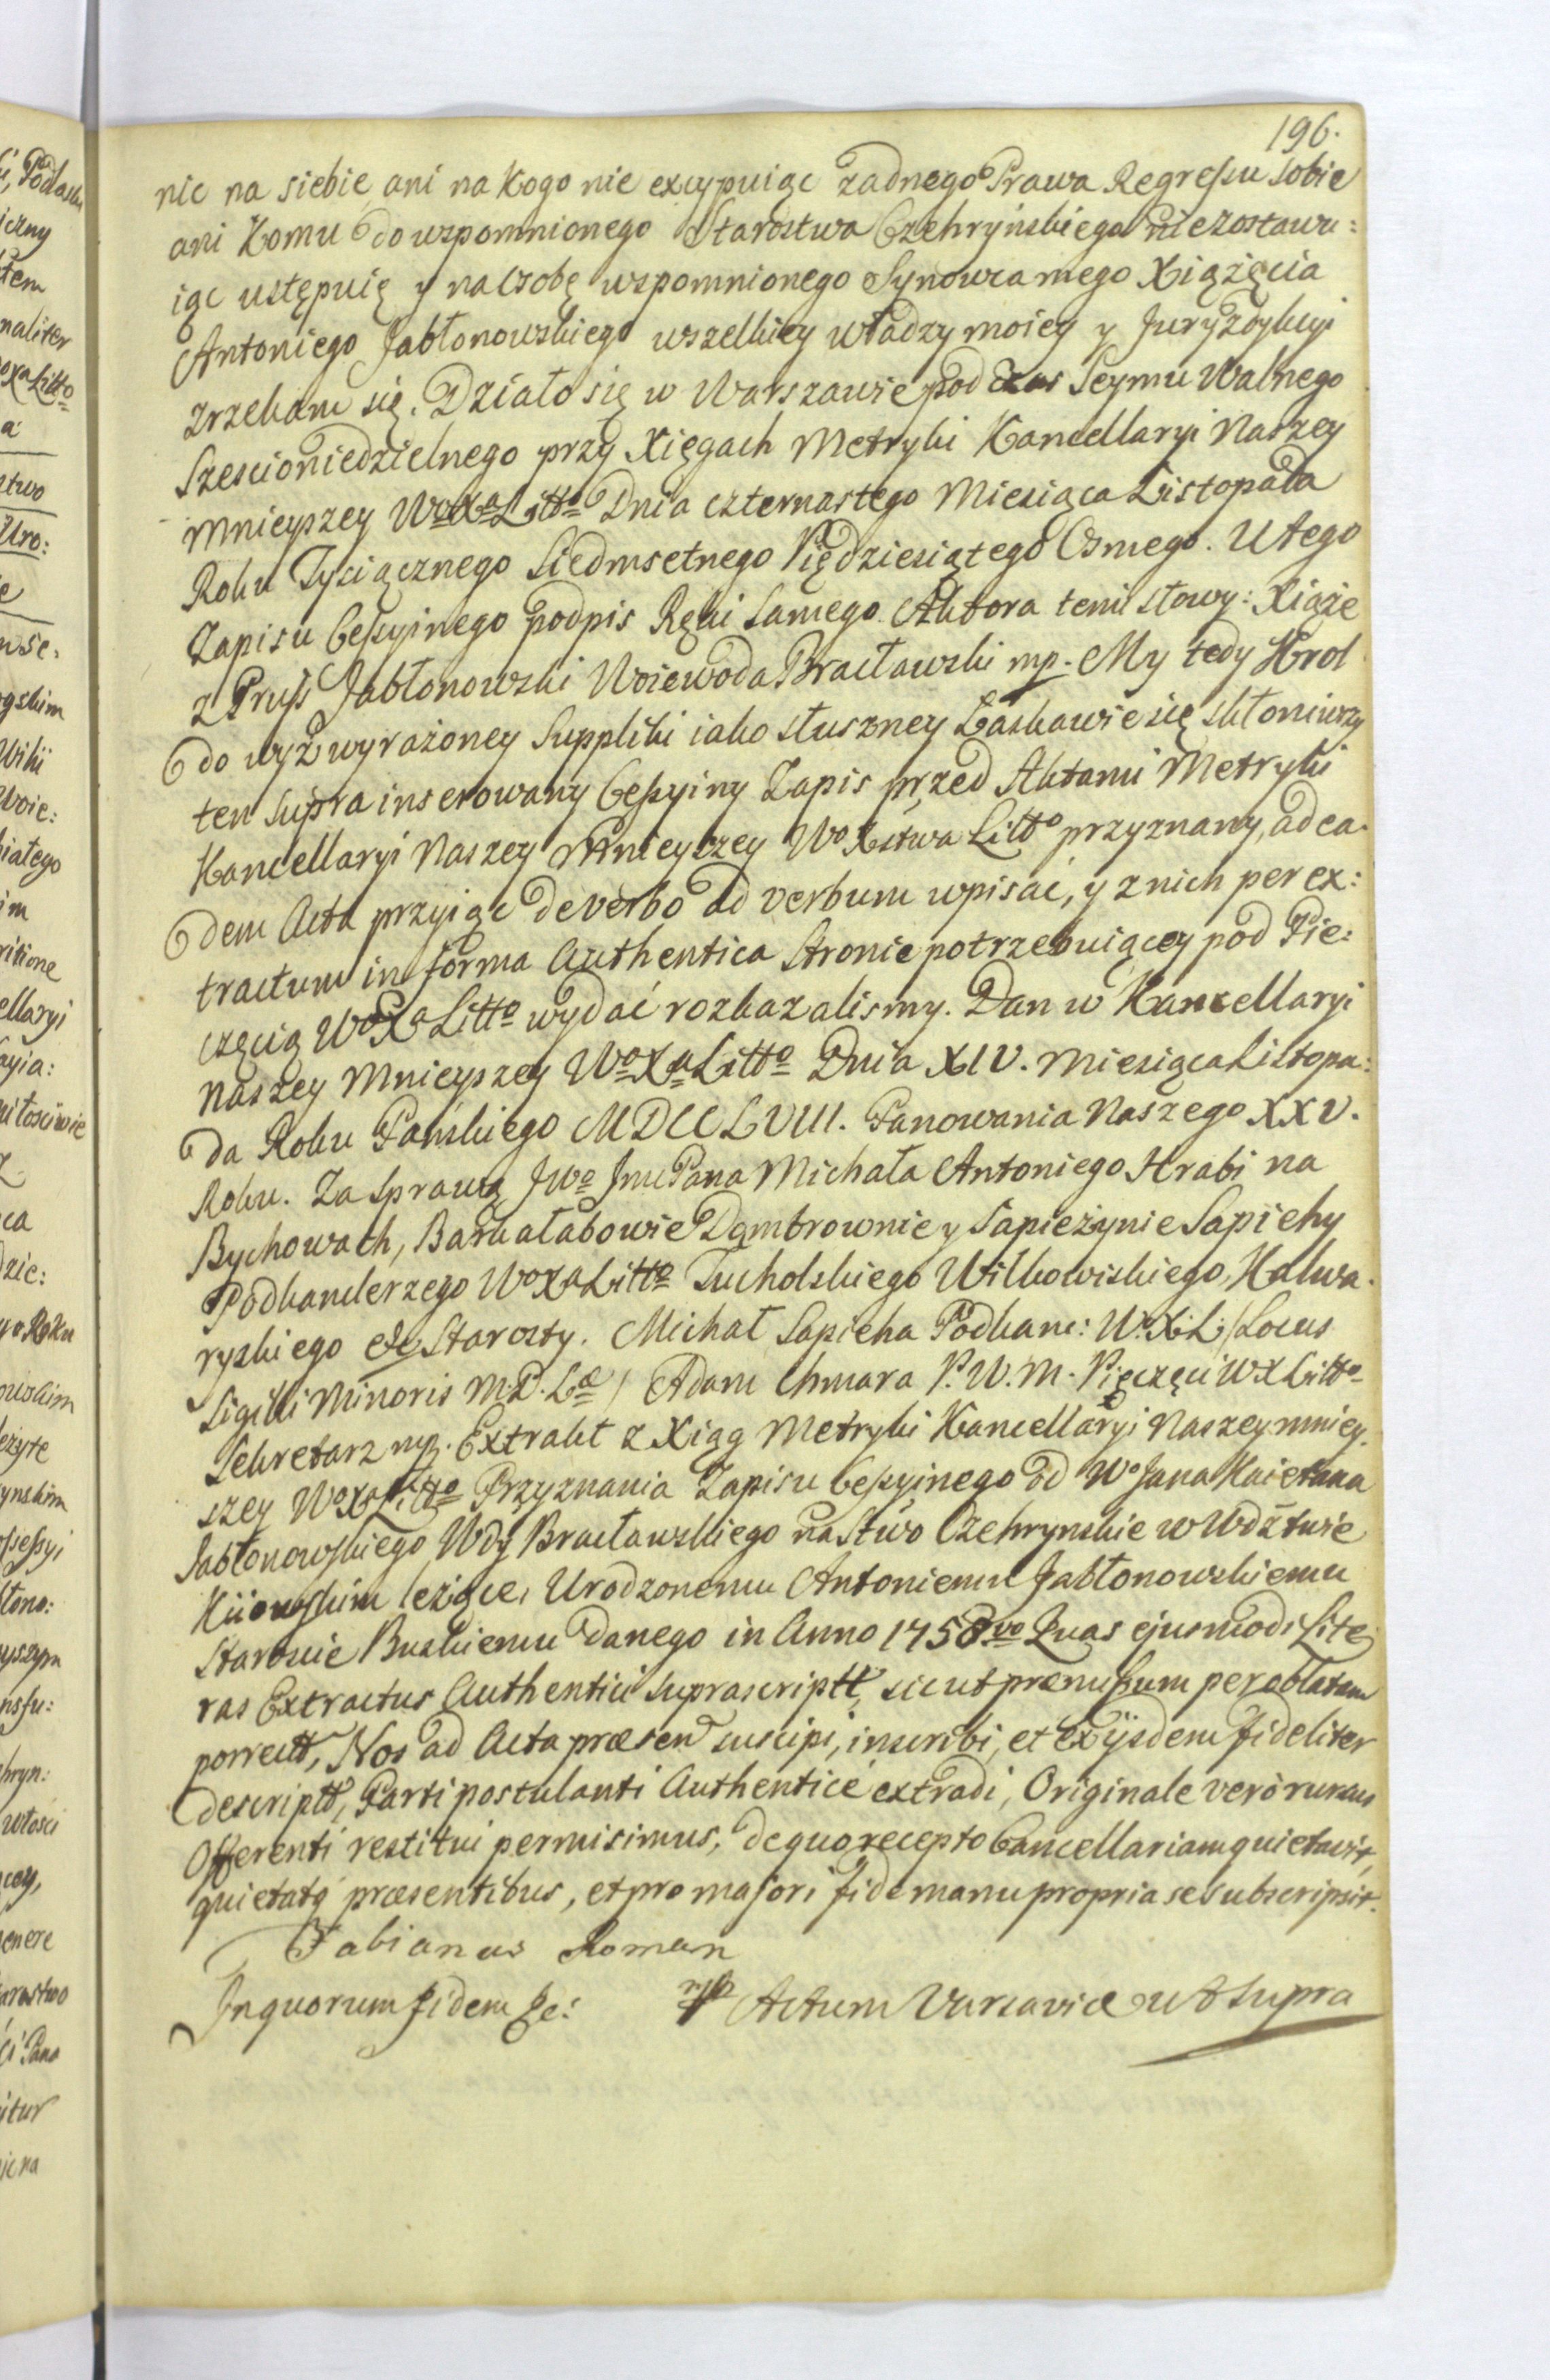 196.
nic na siebie ani na kogo nie excypuiąc zadnego Prawa Regressu sobie
ani komu do wspomnionego Starostwa Czehryńskiego nie zostawu:
iąc ustępuię y na Osobę wspomnionego Synowca mego Xiążęcia
Antoniego Jabłonowskiego wszelkiey władzy moiey y Juryzdykcyi
zrzekam się. Działo się w Warszawie pod czas Seymu Walnego
Szescioniedzielnego przy Xięgach Metryki Kancellaryi Naszey
Mnieyszey WoXaLitto Dnia czternastego Miesiąca Listopada
Roku Tysiącznego Siedmsetnego Piędziesiątego Osmego. U tego
Zapisu Cessyinego podpis Ręki Samego Aktora temi słowy: Xiąże
z Pruss Jabłonowski Woiewoda Bracławski mp. My tedy Krol
do wyż wyrażoney Suppliki iako słuszney Łaskawie się skłoniwszy
ten supra inserowany Cessyiny Zapis przed Aktami Metryki
Kancellaryi Naszey Mnieyszey Wo Xstwa Litto przyznany, ad ea-
dem Acta przyiąc de verbo ad verbum wpisać, y z nich per ex:
tractum in forma Authentica Stronie potrzebuiącey pod Pie:
częcią WoXaLitto wydać rozkazalismy. Dan w Kancellaryi
Naszey Mnieyszey WoXaLitto Dnia XIV. Miesiąca Listopa:
da Roku Pańskiego MDCCLVIII. Panowania Naszego XXV.
Roku. Za Sprawą JWo Jmc Pana Michała Antoniego Hrabi na
Bychowach, Barkałabowie Dąmbrownie y Sapieżynie Sapiehy
Podkanclerzego WoXaLitto Tucholskiego Wilkowiskiego, Kalwa-
ryskiego &c Starosty. Michał Sapieha Podkanc: W.X.L. /Locus
Sigilli Minoris M.D.Læ/ Adam Chmara P.W.M. Pięczęci WXLitto
Sekretarz mp. Extrakt z Xiąg Metryki Kancellaryi Naszey mniey-
szey WoXaLitto Przyznania Zapisu Cessyinego od Wo Jana Kaietana
Jabłonowskiego Wdy Bracławskiego na Stwo Czehrynskie w Wdztwie
Kiiowskim leżące, Urodzonemu Antoniemu Jabłonowskiemu
Staroscie Buskiemu danego in Anno 1758vo Quas ejusmodi Lite
ras Extractus Authentici suprascriptt, sicut præmissum per oblatam
porrectt, Nos ad Acta præsen suscipi, inscribi, et ex ijsdem fideliter
descriptt, Parti postulanti Authenticè extradi, Originale verò rursus
Offerenti restitui permisimus, de quo recepto Cancellariam quietavit,
quietatq præsentibus, et pro majori fide manu propria se subscripsit.
Fabianus Roman
In quorum fidem &c: mp Actum Varsaviæ ut supra